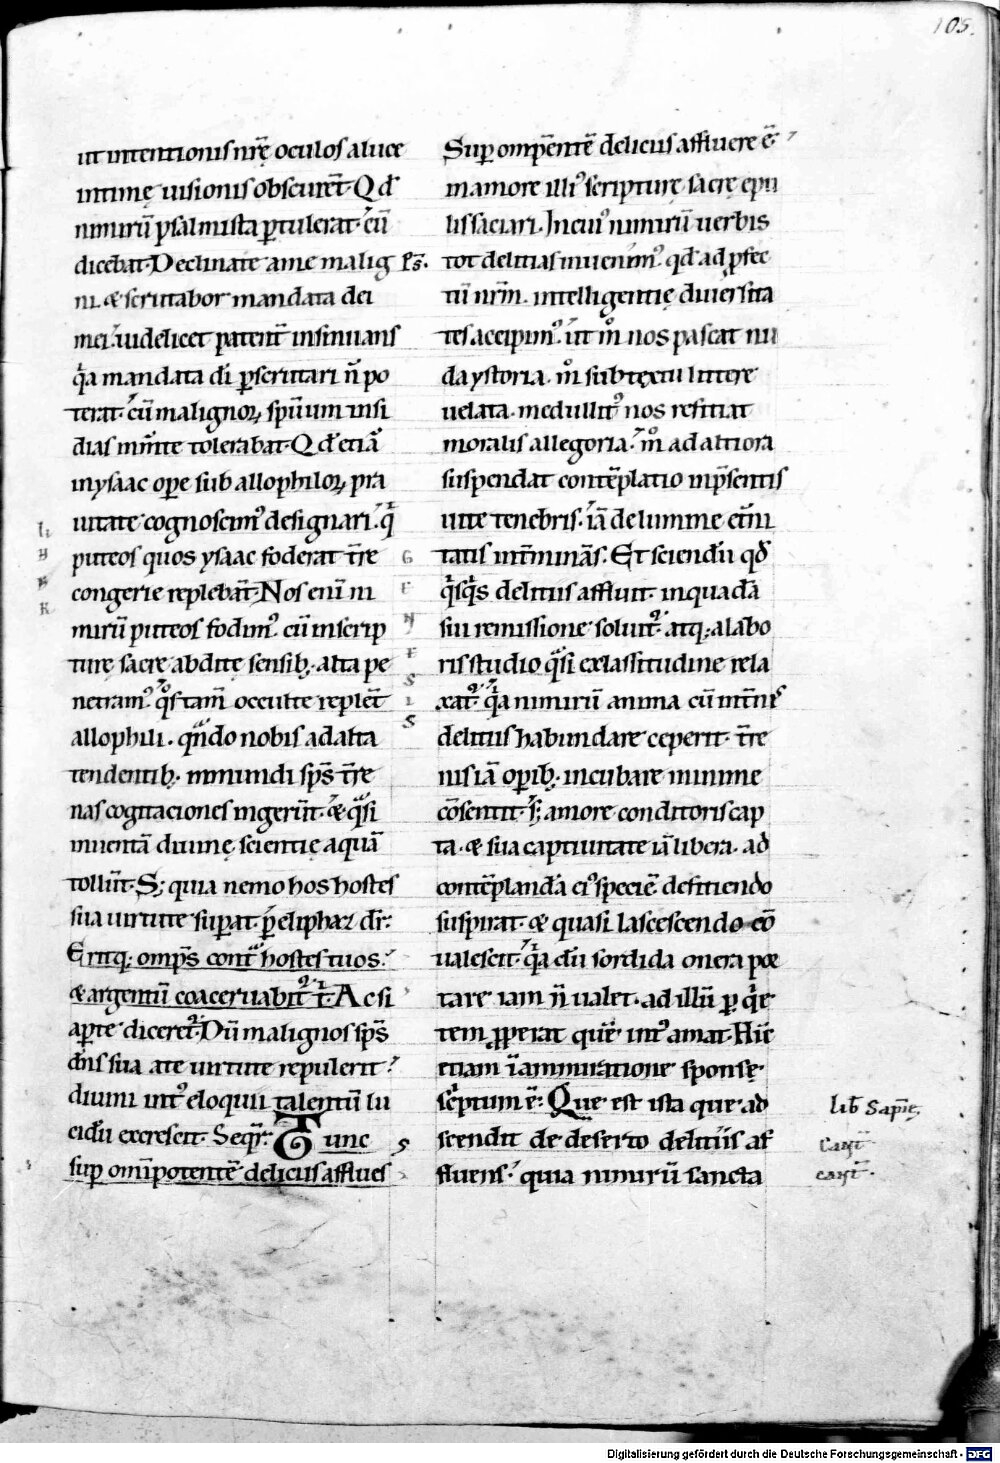 105.
ut intentionis nr̄ę oculos a luce
intimę uisionis obscurēt. Qd̄
nimirū psalmista ꝑtulerat. cū
dicebat. Declinate a me malig
ps̄.
ni. & scrutabor mandata dei
mei. uidelicet patent̄ insinuans
qͥa mandata dī ꝑscrutari n̄ po
terat. cū malignoꝝ spūum insi
dias in m̄te tolerabat. Qd̄ etiā
in ysaac oꝑe sub allophiloꝝ pra
uitate cognoscimꝰ designari. qͥ
puteos quos ysaac foderat t̄re
congerie replebāt. Nos enī ni
mirū puteos fodimꝰ. cū in scrip
turę sacrę abditę sensibꝫ. alta pe
netramꝰ. qͦs tam̄ occulte replēt
allophili. qn̄do nobis ad alta
tendentibꝫ. inmundi sps̄ t̄re
nas cogitaciones ingerūt. & qͣsi
inuentā diuinę scientię aquā
tollūt. Sꝫ quia nemo hos hostes
sua uirtute suꝑat. ꝑ eliphaz dr̄.
Eritqꝫ omps̄ contͣ hostes tuos.
& argentū coaceruabitᷣ tͥ. Ac si
aꝑte dicerēt. Dū malignos sps̄
dn̄s sua a te uirtute repulerit.
diuini intꝰ eloquii talentū lu
cidū excrescit. Seqͥr. Tunc
suꝑ omīpotentē deliciis afflues
li
b
R
Suꝑ ompēntē deliciis affluere ē.
in amore illiꝰ scripturę sacrę epu
lis saciari. In cuiꝰ nimirū uerbis
tot delitias inuenimꝰ. qd̄ ad ꝓfec
tū nr̄m. intelligentię diuersita
tes accipimꝰ. ut mͦ nos pascat nu
da ystoria. mͦ sub textu littere
uelata. medullitꝰ nos refitiat
moralis allegoria. mͦ ad altiora
suspendat contēplatio in p̄sentis
uite tenebris. iā de lumine et̄ni
tatis int̄minās. Et sciendū qd̄
qͥsqͥs delitiis affluit. in quadā
sui remissione soluitᷣ. atqꝫ a labo
ris studio qͣsi ex lassitudine rela
xatᷣ. qͥa nimirū anima cū int̄niˢ
delitiis habundare ceperit. t̄re
nis iā oꝑibꝫ. incubare minime
cōsentit. sꝫ amore conditoris cap
ta. & sua captiuitate iā libera. ad
contēplandā eiꝰ speciē defitiendo
suspirat. & quasi lascescendo cō
ualescit. qͥa dū sordida onera por
tare iam n̄ ualet. ad illū ꝑ qͥe
tem ꝓperat quē intꝰ amat. Hīc
etiam ī ammiratione sponsę
scͥptum ē. Que est ista que ad
scendit de deserto delitiis af
fluens. quia nimirū sancta
G
E
N
E
S
I
S
lib̄ Sapīę
Cant̄
cant̄.
Digitalisierung gefördert durch die Deutsche Forschungsgemeinschaft - DFG